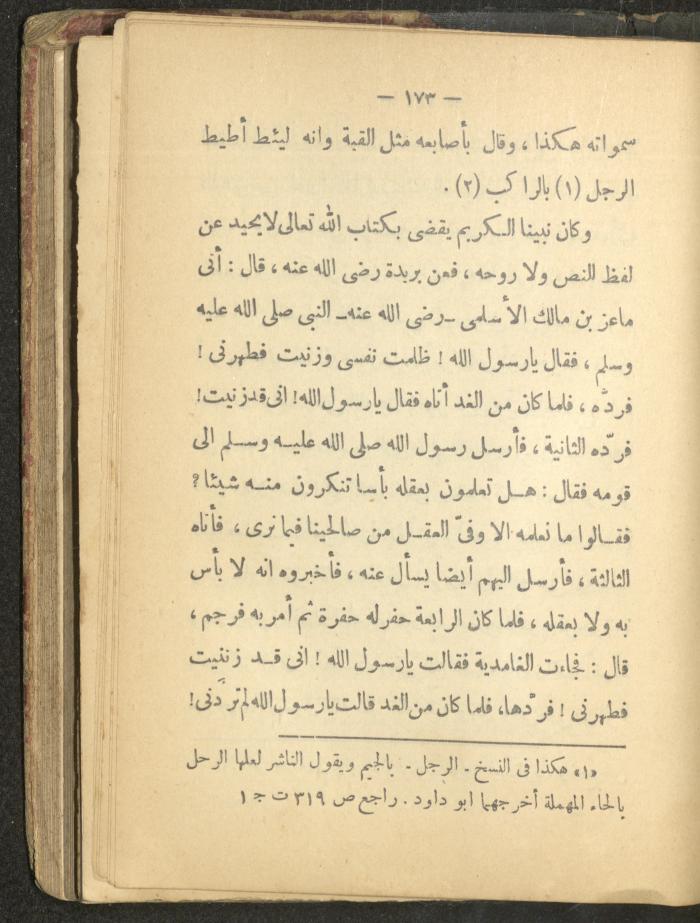 — ١٧٣ —
سمواته هكذا ، وقال بأصابعه مثل القبة وانه ليئط أطيط
الرجل (١) بالراكب (٢) .
وكان نبينا الكريم يقضى بكتاب الله تعالى لا يحيد عن
لفظ النص ولا روحه ، فعن بريدة رضى الله عنه ، قال : أتى
ماعز بن مالك الأسلمى ـ رضى الله عنه ـ النبى صلى الله عليه
وسلم ، فقال يارسول الله ! ظلمت نفسى وزنيت فطهرنى !
فردّه ، فلما كان من الغد أتاه فقال يارسول الله ! انى قد زنيت !
فردّه الثانية ، فأرسل رسول الله صلى الله عليه وسلم الى
قومه فقال : هل تعلمون بعقله بأسا تنكرون منه شيئا ؟
فقالوا ما نعلمه الا وفىّ العقل من صالحينا فيما نرى ، فأتاه
الثالثة ، فأرسل اليهم أيضا يسأل عنه ، فأخبروه انه لا بأس
به ولا بعقله ، فلما كان الرابعة حفر له حفرة ثم أمر به فرجم ،
قال : فجاءت الغامدية فقالت يارسول الله ! انى قد زنيت
فطهرنى ! فردّها، فلما كان من الغد قالت يارسول الله لم تردّنى !
«١» هكذا فى النسخ ـ الرجل ـ بالجيم ويقول الناشر لعلها الرحل
بالحاء المهملة أخرجهما ابو داود . راجع ص ٣١٩ ت ج ١